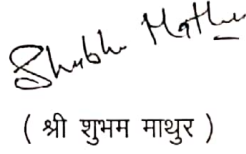 Shubh Mathu
( श्री शुभम माथुर )